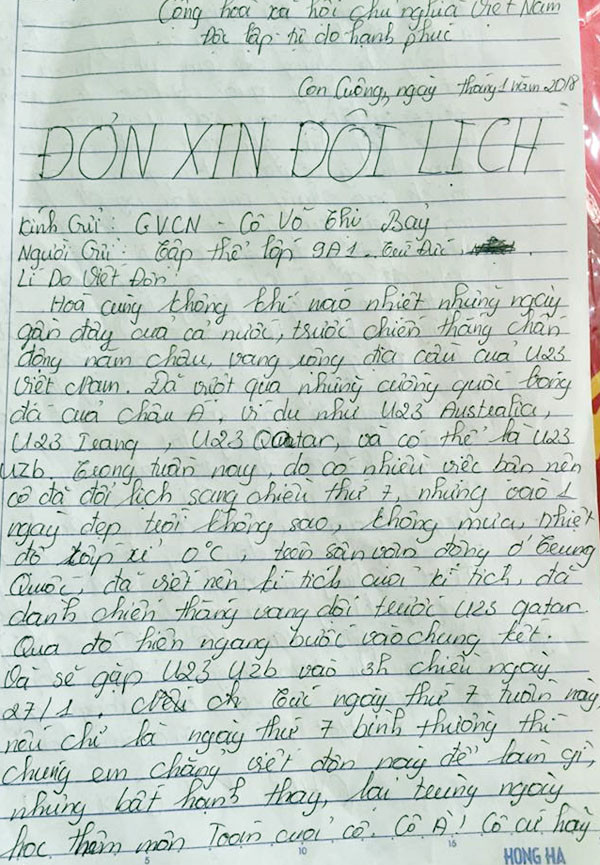 Cộng hoà xã hội chủ nghĩa Việt Nam
Độc lập tự do hạnh phúc
Con Cuông, ngày tháng 1 năm 2018
ĐƠN XIN ĐỔI LỊCH
Kính Gửi: GVCN - Cô Võ Thị Bảy
Người Gửi: Tập thể lớp 9A1
Lí Do Viết Đơn:
Hoà cùng không khí náo nhiệt những ngày
gần đây của cả nước, trước chiến thắng chấn
động năm châu, vang vọng địa cầu của U23
Việt Nam. Đã vượt qua những cường quốc bóng
đá của châu Á, ví dụ như U23 Australia,
U23 Irang, U23 Qatar, và có thể là U23
Uzb. Trong tuần này, do có nhiều việc bận nên
cô đã đổi lịch sang chiều thứ 7, nhưng vào 1
ngày đẹp trời không sao, không mưa, nhiệt
độ xấp xỉ 0°C, trên sân vận động ở Trung
Quốc, đã viết nên kì tích cuối kì tích, đã
dành chiến thắng vang dội trước U23 qatar.
Qua đó hiên ngang bước vào chung kết.
Và sẽ gặp U23 Uzb vào 3h chiều ngày
27/1. Tức ngày thứ 7 tuần này,
nếu chỉ là ngày thứ 7 bình thường thì
chúng em chẳng viết đơn này để làm gì,
nhưng bất hạnh thay, lại trùng ngày
học thêm môn Toán của cô. Cô À! Cô cứ hay
5 10 15 HONG HA